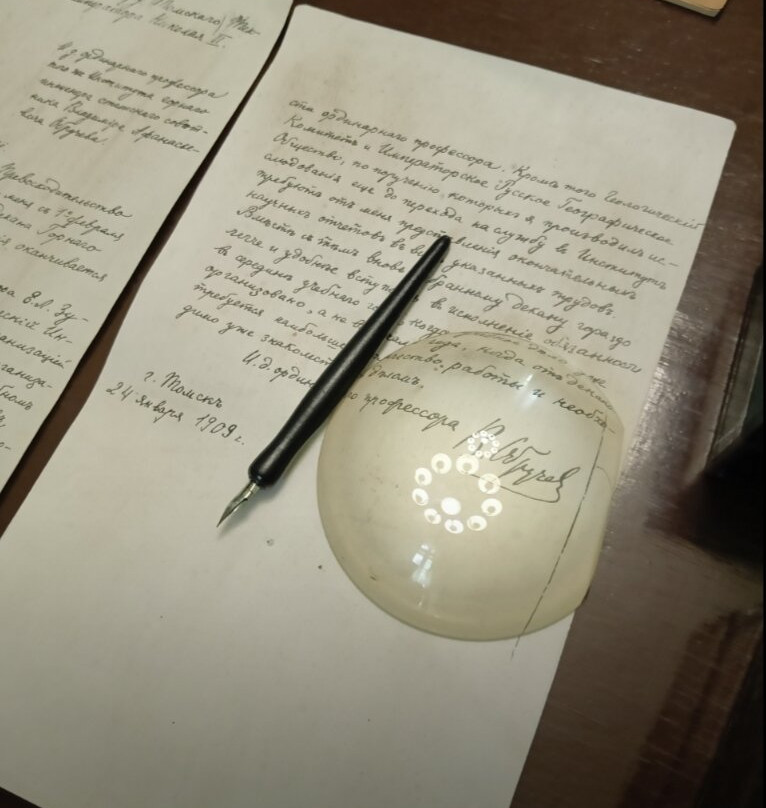 Томскаго Тех-
Императора Николая II.
И.д. ординарнаго профессора
того же Института горнаго
инженера статскаго совет-
ника Владиміра Афанасье-
вича Обручева.
Превосходительство
меня съ 1го февраля
декана Горнаго
оканчивается
В.Л. Зу-
Ин-
организацій
сти ординарнаго профессора. Кроме того Геологическій
Комитетъ и Императорское Русское Географическое
Общество, по порученію которыхъ я производилъ ис-
следованія еще до перехода на службу въ Институтъ
требуютъ отъ меня представленія окончательныхъ
научныхъ отчетовъ въ указанныхъ трудовъ.
Вместе съ темъ вновь избранному декану гораздо
легче и удобнее вступить въ исполненіе обязанностей
въ средине учебнаго года, когда
организовано, а не въ года, когда отъ декана
требуется наибольшее работы и необхо-
димо уже знакомство
И.д. ординарнаго профессора В. Обручев
г. Томскъ
24 Января 1909 г.